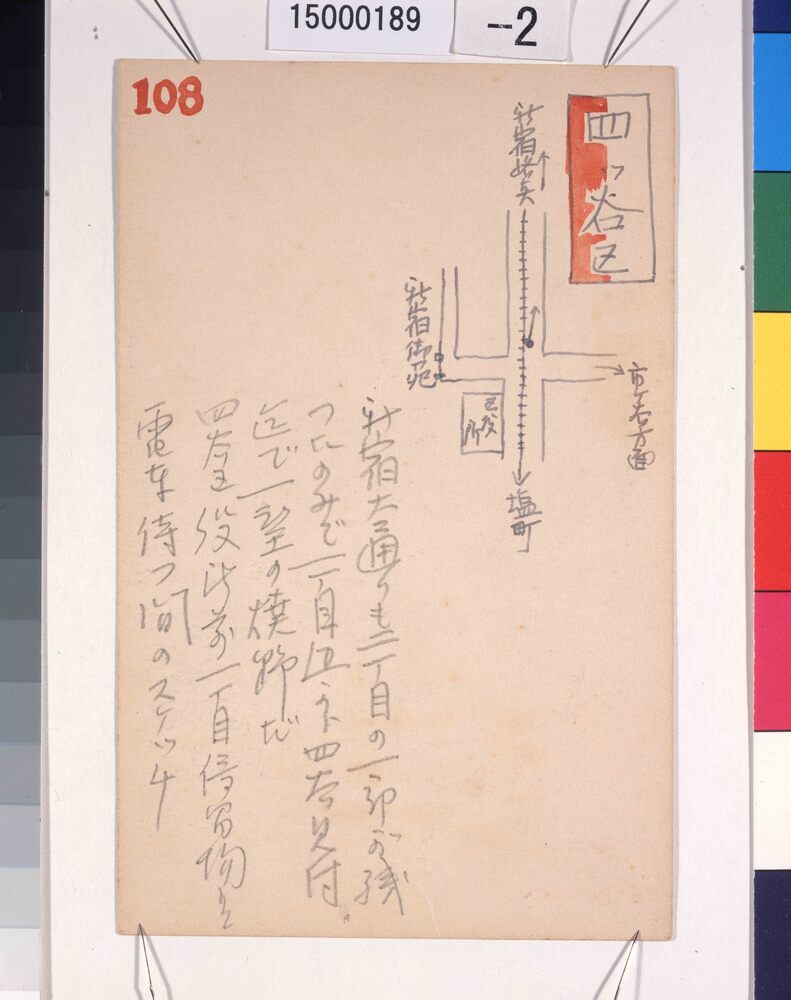 15000189
-2
108
四ッ谷区
新宿終点
新宿御苑
市ヶ谷方面
区役所
塩町
新宿大通りも二丁目の一部が残
つたのみで一丁目辺から四谷見付
迄で一望の焼野だ
四谷区役所前一丁目停留場で
電車待つ間のスケッチ